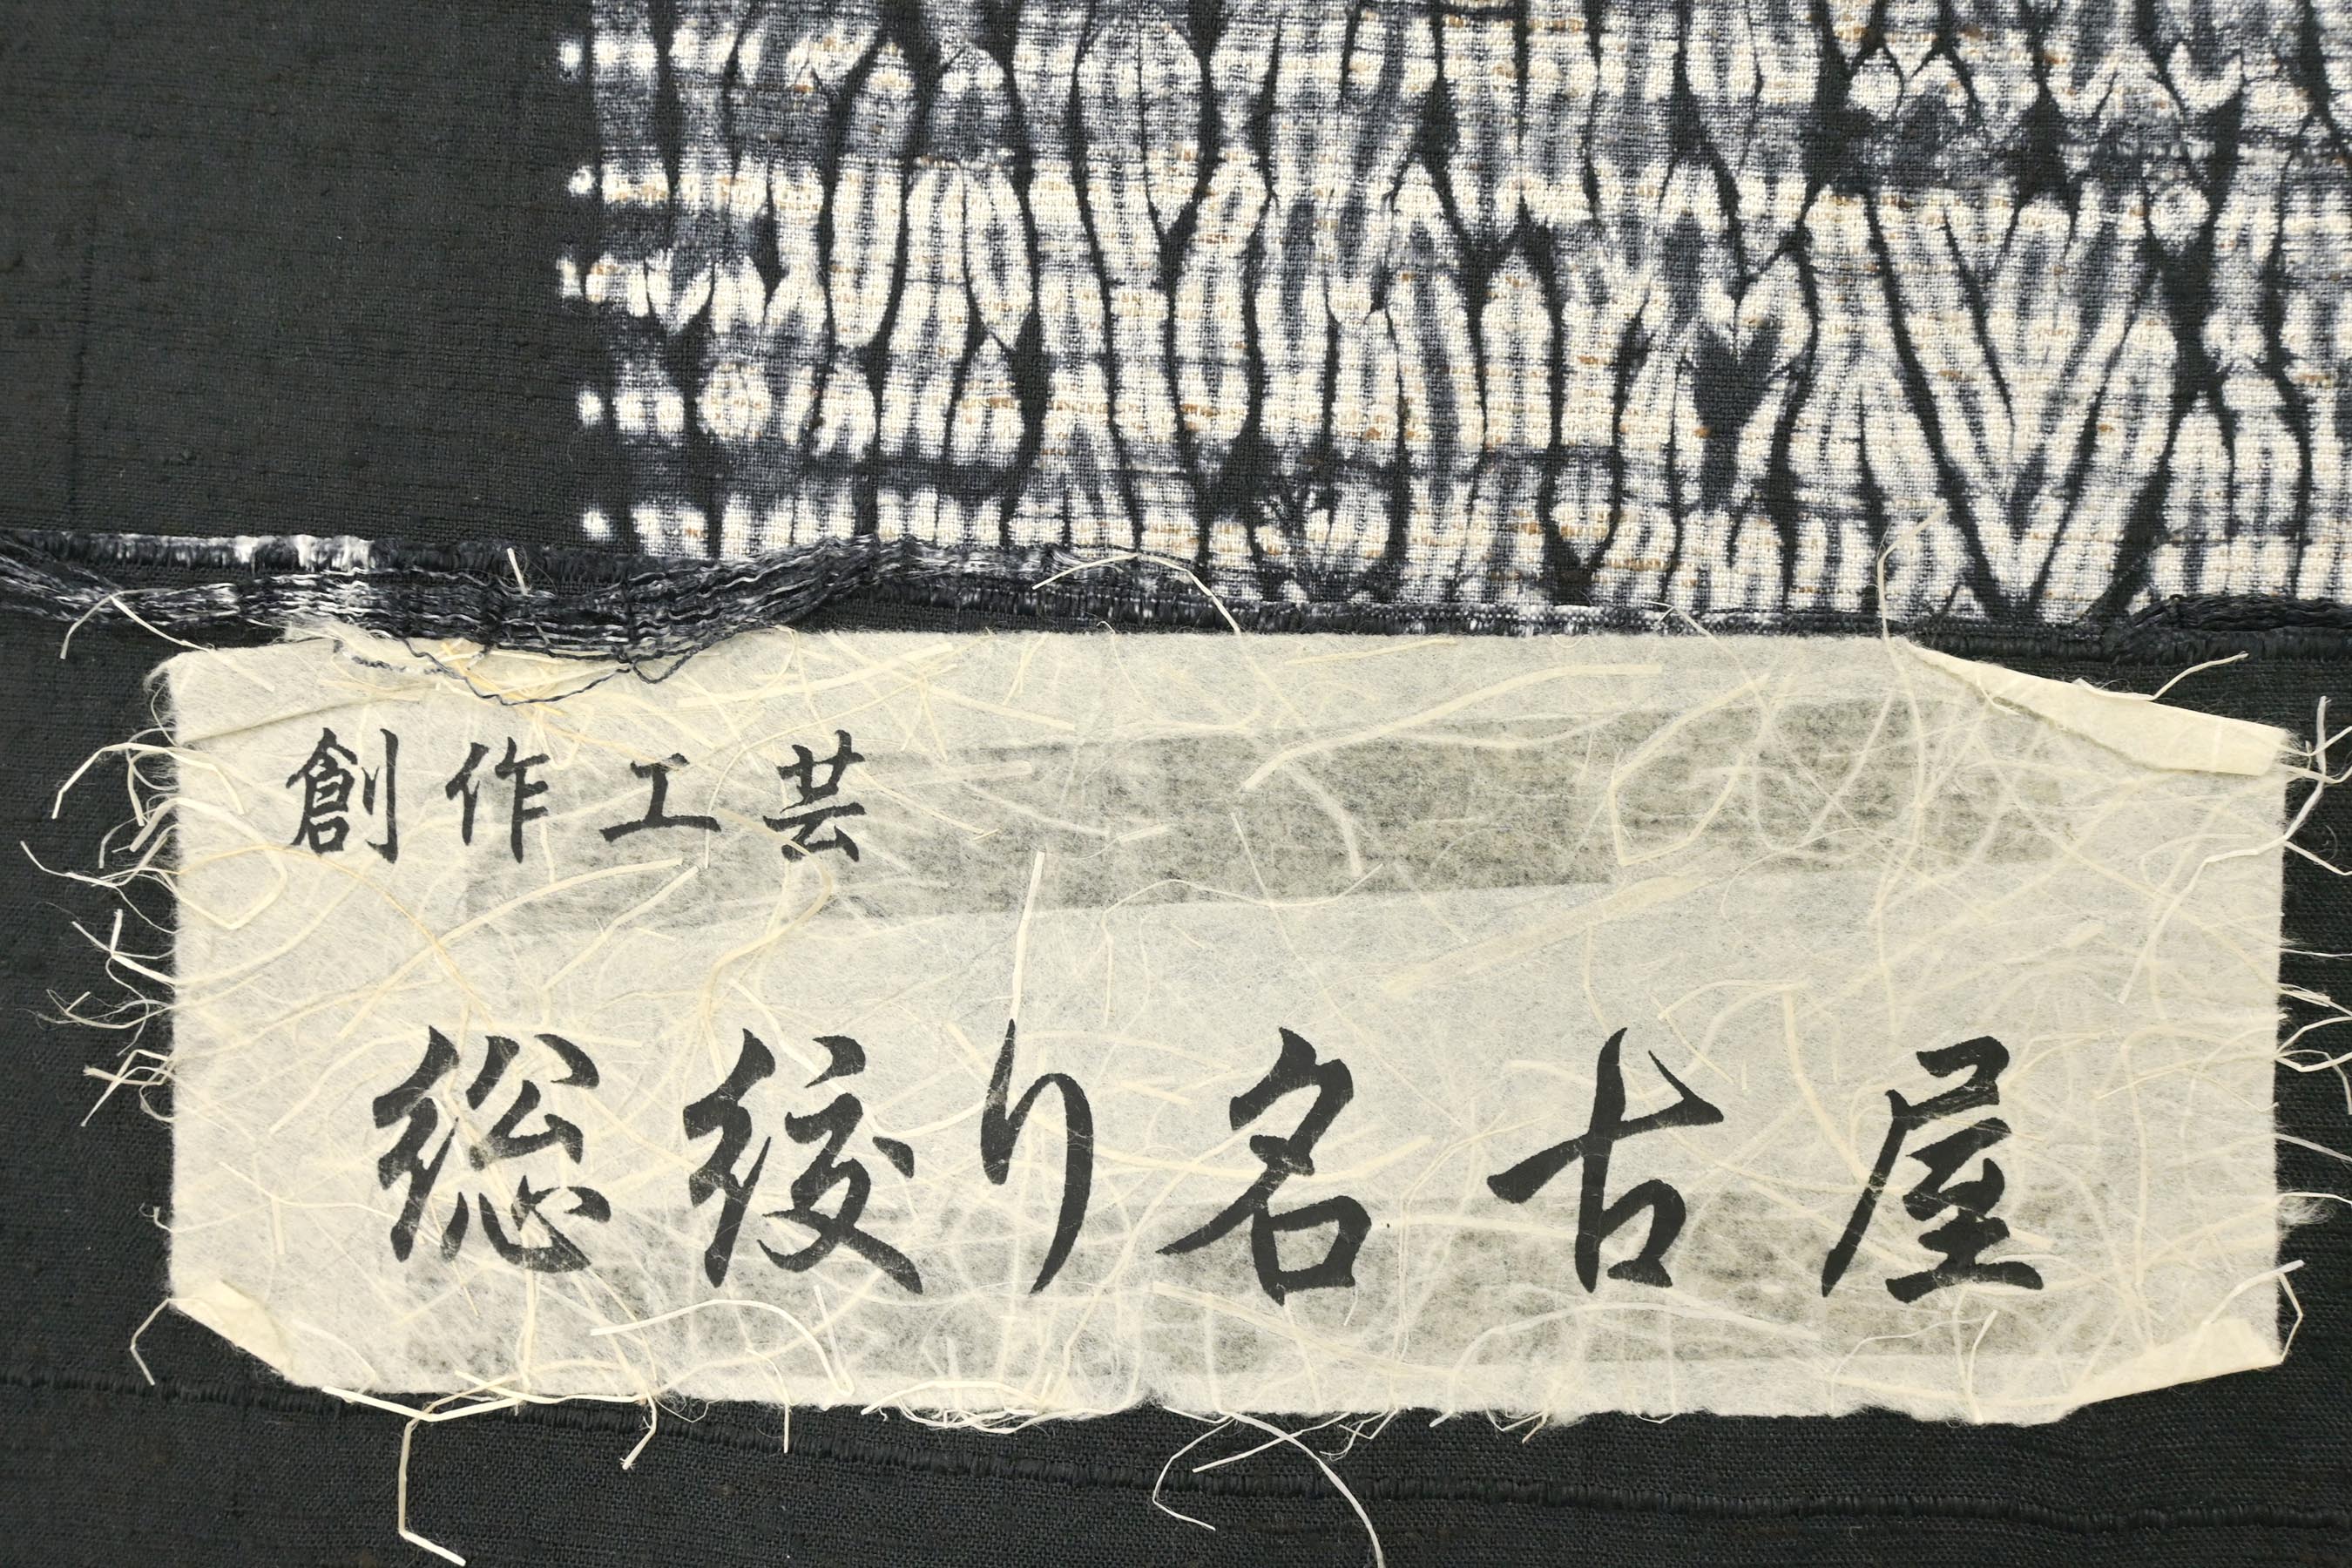 創作工芸
総絞り名古屋